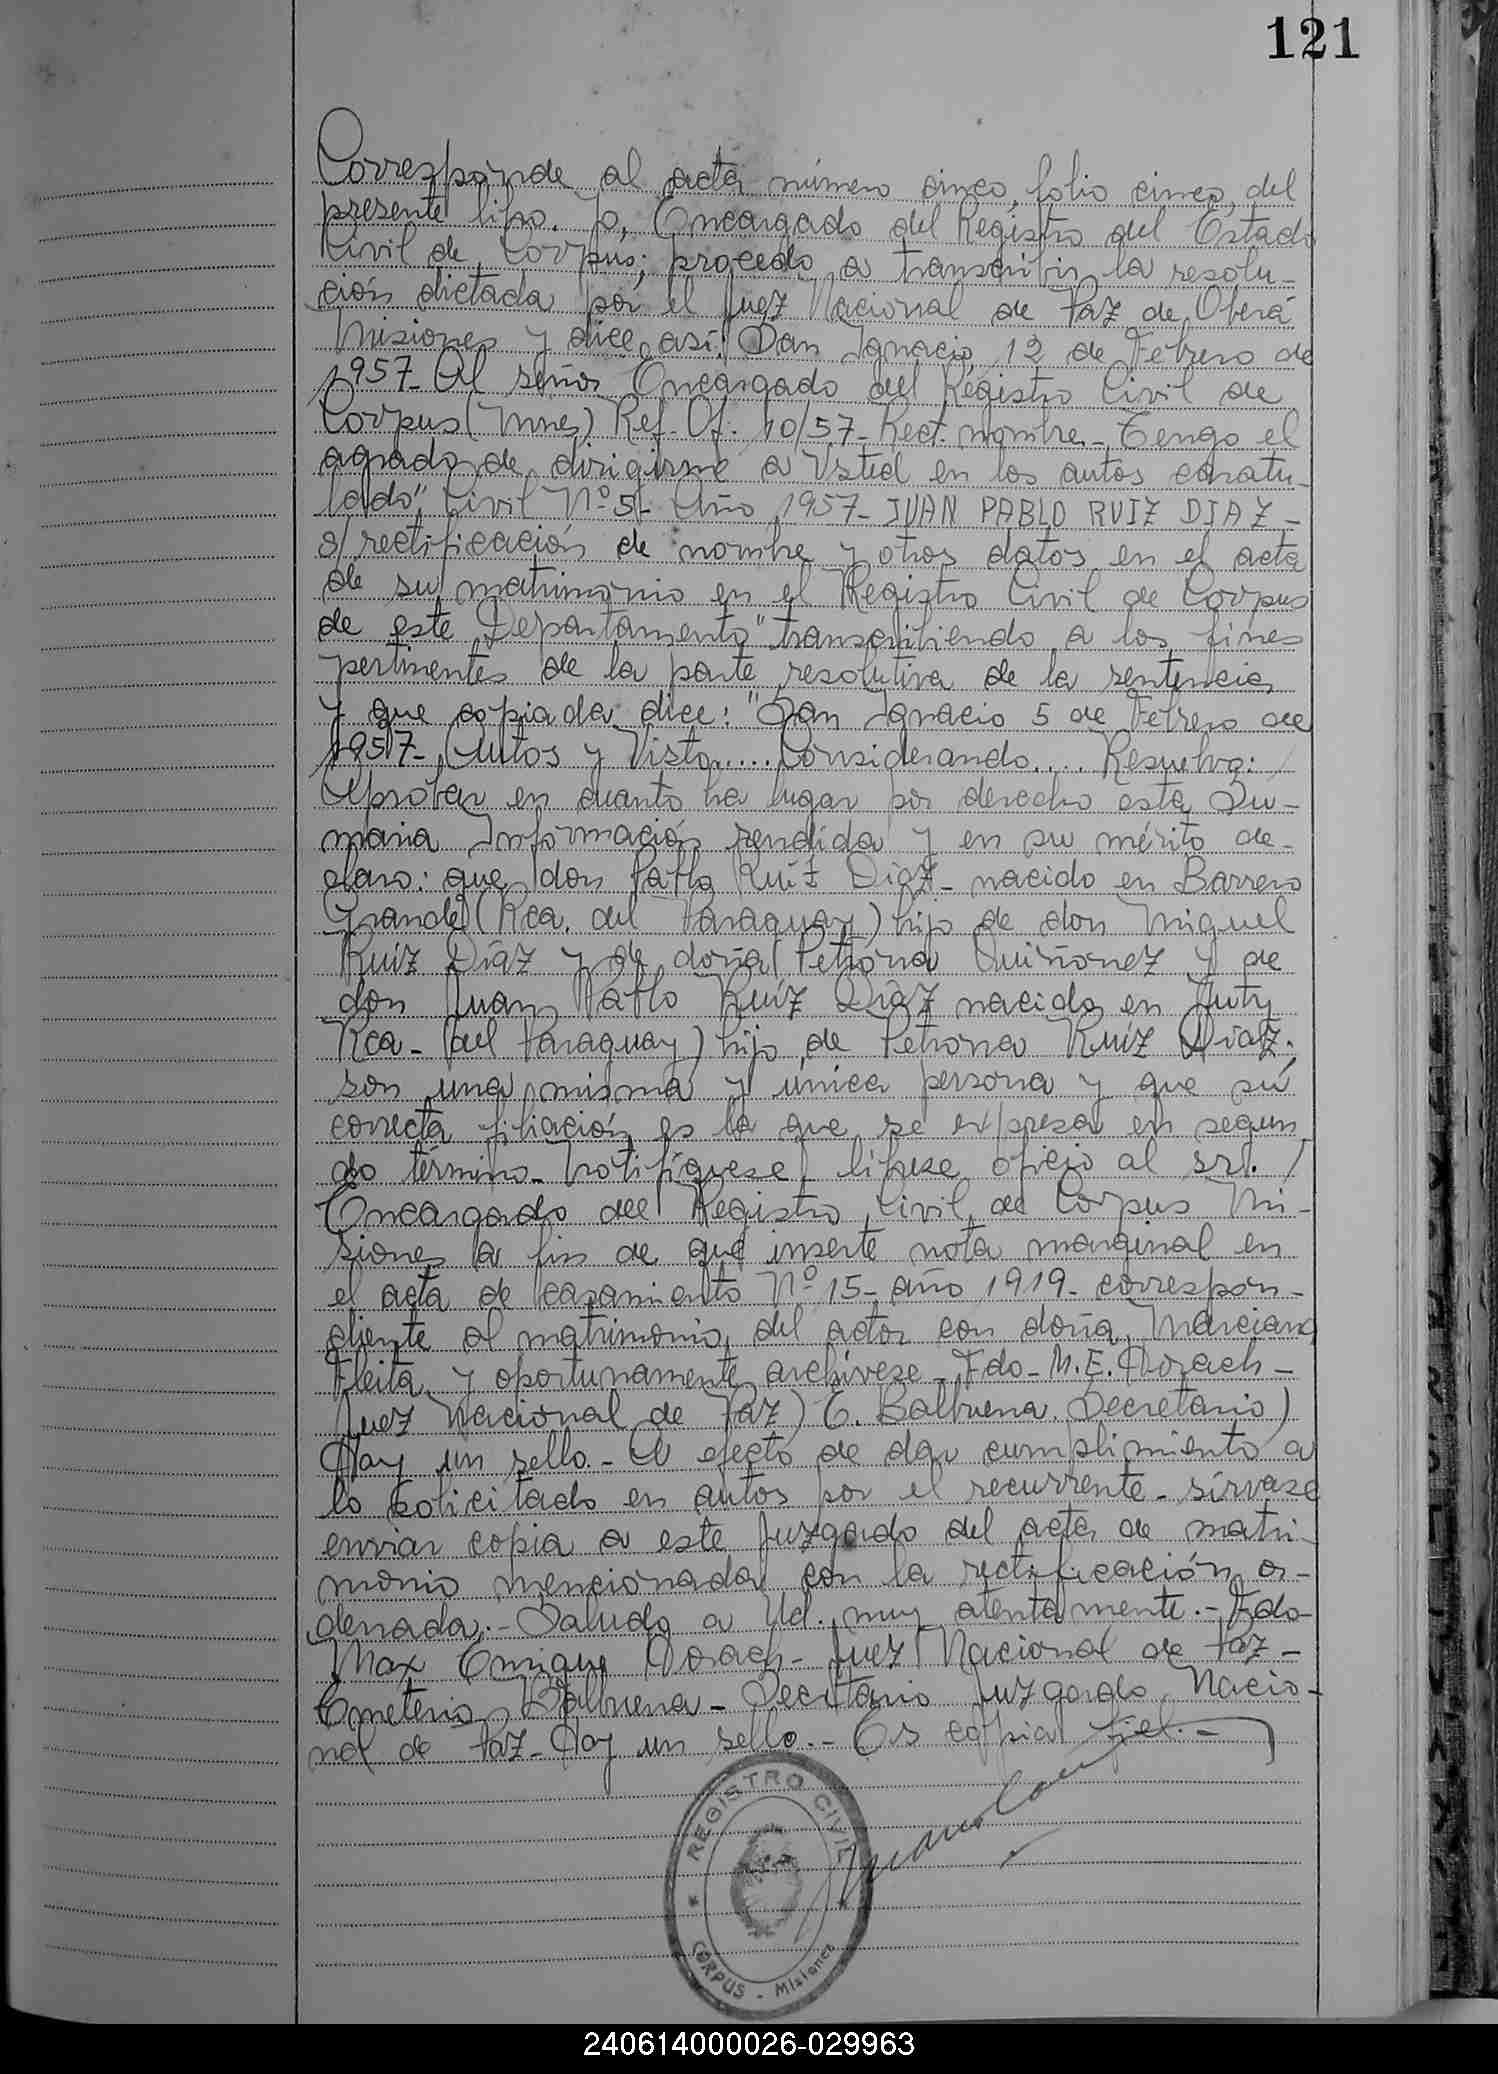 121
Corresponde al acta número cinco, folio cinco, del
presente libro. Yo, Encargado del Registro del Estado
Civil de Corpus; procedo a transcribir la resolu-
ción dictada por el Juez Nacional de Paz de Oberá
Misiones y dice así: San Ignacio, 12 de Febrero de
1957- Al señor Encargado del Registro Civil de
Corpus (Mnes) Ref- Of. 10/57- Rect. nombre- Tengo el
agrado de dirigirme a Usted en los autos caratu-
lado" Civil Nº 5- Año 1957- JUAN PABLO RUIZ DIAZ-
s/ rectificación de nombre y otros datos en el acta
de su matrimonio en el Registro Civil de Corpus
de este Departamento" transcribiendo a los fines
pertinentes de la parte resolutiva de la sentencia
y que copiada dice: "San Ignacio 5 de Febrero de
1957- Autos y Vista.... Considerando.... Resuelvo: /
Aprobar en cuanto ha lugar por derecho esta Su-
maria Información rendida y en su mérito de-
claro: que don Pablo Ruíz Díaz- nacido en Barrero
Grande (Rca. del Paraguay) hijo de don Miguel
Ruíz Díaz y de doña Petrona Quiñonez y de
don Juan Pablo Ruíz Díaz nacido en Yuty
Rca- (del Paraguay) hijo de Petrona Ruíz Díaz.
son una misma y única persona y que sú
correcta filiación es la que se expresa en segun
do término- Notifíquese, líbrese oficio al srl. /
Encargado del Registro Civil de Corpus Mi-
siones a fin de que inserte nota marginal en
el acta de casamiento Nº 15- año 1919- correspon-
diente al matrimonio del actor con doña Marciana
Fleita y oportunamente archívese- Fdo- M. E. Dorach-
Juez Nacional de Paz) E. Balbuena. Secretario)
Hay un sello.- A efecto de dar cumplimiento a
lo solicitado en autos por el recurrente- sírvase
enviar copia a este Juzgado del acta de matri-
monio mencionada con la rectificación or-
denada.- Saludo a Ud. muy atentamente.- Fdo-
Max Enrique Dorach- Juez Nacional de Paz-
Emeterio Balbuena- Secretario Juzgado Nacio-
nal de Paz- Hay un sello.- Es copia fiel.-
REGISTRO CIVIL
CORPUS - Misiones
240614000026-029963